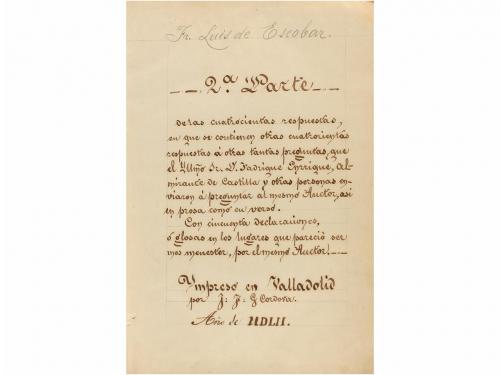 Fr. Luis de Escobar.
2.ª Parte
de las cuatrocientas respuestas,
en que se contienen otras cuatrocientas
respuestas á otras tantas preguntas, que
el Yllmo Sr. D. Fadrique Enrrique, Al-
mirante de Castilla y otras personas en-
viaron á preguntar al mesmo Auctor, asi
en prosa como en verso.
Con cincuenta declaraciones,
ó glosas en los lugares que pareció ser
mes menester, por el mesmo Auctor!
Ympreso en Valladolid
por J: J: G Cordova.
Año de MDLII.